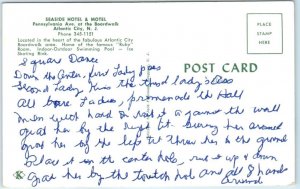 SEASIDE HOTEL & MOTEL
Pennsylvania Ave. at the Boardwalk
Atlantic City, N. J.
Phone 345-1151
Located in the heart of the fabulous Atlantic City
Boardwalk area. Home of the famous "Ruby"
Room. Indoor-Outdoor Swimming Pool - Ice
Skating Rink.
PLACE
STAMP
HERE
POST CARD
Square Dance
Down the Center, first Lady pass
Second Lady Kiss the third lady's Ass
All bare Ladies, promenade the Hall
Men grab hard on nail it against the wall
grab her by the right tit swing her around
grab her by the left tit throw her to the ground
Place it in the center hole, run it up & down
Grab her by the hole and all hands
around
K